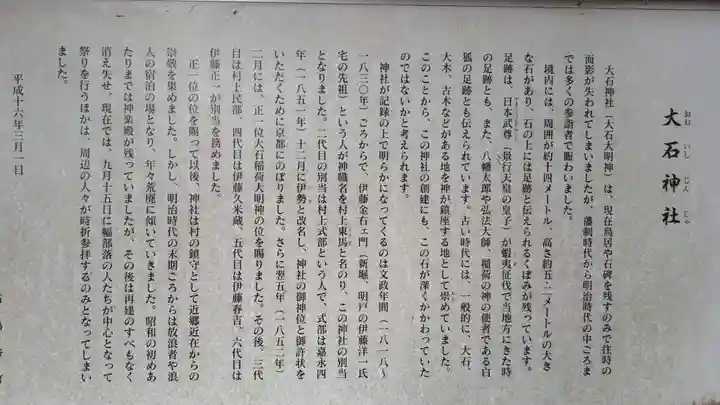 大石神社
おお いし じん じゃ
大石神社（大石大明神）は、現在鳥居や石碑を残すのみで往時の
面影が失われてしまいましたが、藩制時代から明治時代の中ごろま
では多くの参詣者で賑わいました。
境内には、周囲が約十四メートル、高さ約五・二メートルの大き
な石があり、石の上には足跡と伝えられるくぼみが残っています。
足跡は、日本武尊（景行天皇の皇子）が蝦夷征伐で当地方にきた時
の足跡とも、また、八幡太郎や弘法大師、稲荷の神の使者である白
狐の足跡とも伝えられています。古い時代には、一般的に、大石、
大木、古木などがある地を神が鎮座する地として崇めていました。
このことから、この神社の創建にも、この石が深くかかわっていた
のではないかと考えられます。
神社が記録の上で明らかになってくるのは文政年間（一八一八〜
一八三〇年）ごろからで、伊藤金右ェ門（新堀、明戸の伊藤洋一氏
宅の先祖）という人が神職名を村上東馬と名のり、この神社の別当
となりました。二代目の別当は村上式部という人で、式部は嘉永四
年（一八五一年）十二月に伊勢と改名し、神社の御神位と御許状を
いただくために京都にのぼりました。さらに翌五年（一八五二年）
二月には、正一位大石稲荷大明神の位を賜りました。その後、三代
目は村上民部、四代目は伊藤久米蔵、五代目は伊藤春吉、六代目は
伊藤正一が別当を務めました。
正一位の位を賜って以後、神社は村の鎮守として近郷近在からの
崇敬を集めました。しかし、明治時代の末期ころからは放浪者や浪
人の宿泊の場となり、年々荒廃に傾いていきました。昭和の初めあ
たりまでは神楽殿が残っていましたが、その後は再建のすべもなく
消え失せ、現在では、九月十五日に幅部落の人たちが中心となって
祭りを行うほかは、周辺の人々が時折参拝するのみとなってしまい
ました。
平成十六年三月一日